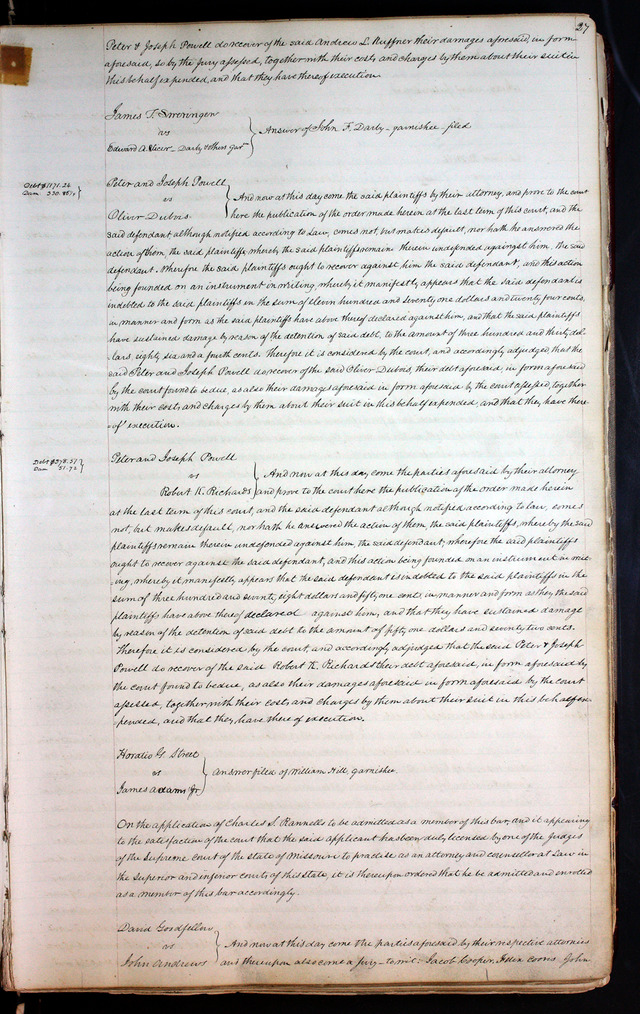 27
Peter & Joseph Powell do recover of the said Andrew L. Ruffner their damages aforesaid, in form
aforesaid, so by the Jury assessed, together with their costs and charges by them about their suit in
this behalf expended, and that they have thereof execution.
James T. Sweringen
vs
Edward A. Darby & others
Answer of John F. Darby - garnishee filed
Debt $1171.24
Dam
Peter and Joseph Powell
vs
Oliver Dubois
And now at this day come the said plaintiffs by their attorney, and prove to the court
here the publication of the order made herein at the last term of this court, and the
said defendant although notified according to Law, comes not, but makes default, nor hath he answered the
action of them, the said plaintiffs, whereby the said plaintiffs remain therein undefended against him the said
defendant. Wherefore the said plaintiffs ought to recover against him the said defendant, and this action
being founded on an instrument in writing whereby it manifestly appears that the said defendant is
indebted to the said plaintiffs in the sum of Eleven hundred and seventy one dollars and twenty four cents,
in manner and form as the said plaintiffs have above thereof declared against him, and that the said plaintiffs
have sustained damage by reason of the detention of said debt, to the amount of three hundred and thirty dol-
lars eighty six and a fourth cents. Therefore it is considered by the court, and accordingly adjudged, that the
said Peter and Joseph Powell do recover of the said Oliver Dubois, their debt aforesaid in form aforesaid
by the court found to be due, as also their damages aforesaid in form aforesaid by the court assessed, together
with their costs and charges by them about their suit in this behalf expended, and that they have there
-of execution.
Debt $378.51
Dam 51.72
Peter and Joseph Powell
vs
Robert K. Richards
And now at this day come the parties aforesaid by their attorney
and prove to the court here the publication of the order made herein
at the last term of this court, and the said defendant although notified according to law, comes
not, but makes default, nor hath he answered the action of them, the said plaintiffs, whereby the said
plaintiffs remain therein undefended against him, the said defendant; wherefore the said plaintiffs
ought to recover against the said defendant, and this action being founded on an instrument in writ-
ing, whereby it manifestly appears that the said defendant is indebted to the said plaintiffs in the
sum of three hundred and seventy eight dollars and fifty one cents, in manner and form as they the said
plaintiffs have above thereof declared against him, and that they have sustained damage
by reason of the detention of said debt to the amount of fifty one dollars and seventy two cents.
Therefore it is considered by the court, and accordingly adjudged that the said Peter & Joseph
Powell do recover of the said Robert K. Richards their debt aforesaid, in form aforesaid by
the court found to be due, as also their damages aforesaid in form aforesaid by the court
assessed, together with their costs and charges by them about their suit in this behalf ex-
pended, and that they have there of execution.
Horatio G. Street
vs
James Adams Jr.
Answer filed of William Hill, garnishee.
On the application of Charles S. Rannells to be admitted as a member of this bar, and it appearing
to the satisfaction of the court that the said applicant has been duly licensed by one of the Judges
of the Supreme Court of the state of Missouri to practise as an attorney and counsellor at Law in
the superior and inferior courts of this state, it is thereupon ordered that he be admitted and enrolled
as a member of this bar accordingly.
David Goodfellow
vs
John Andrews
And now at this day come the parties aforesaid by their respective attornies
and thereupon also come a Jury - to wit: Jacob Cooper, Coons John